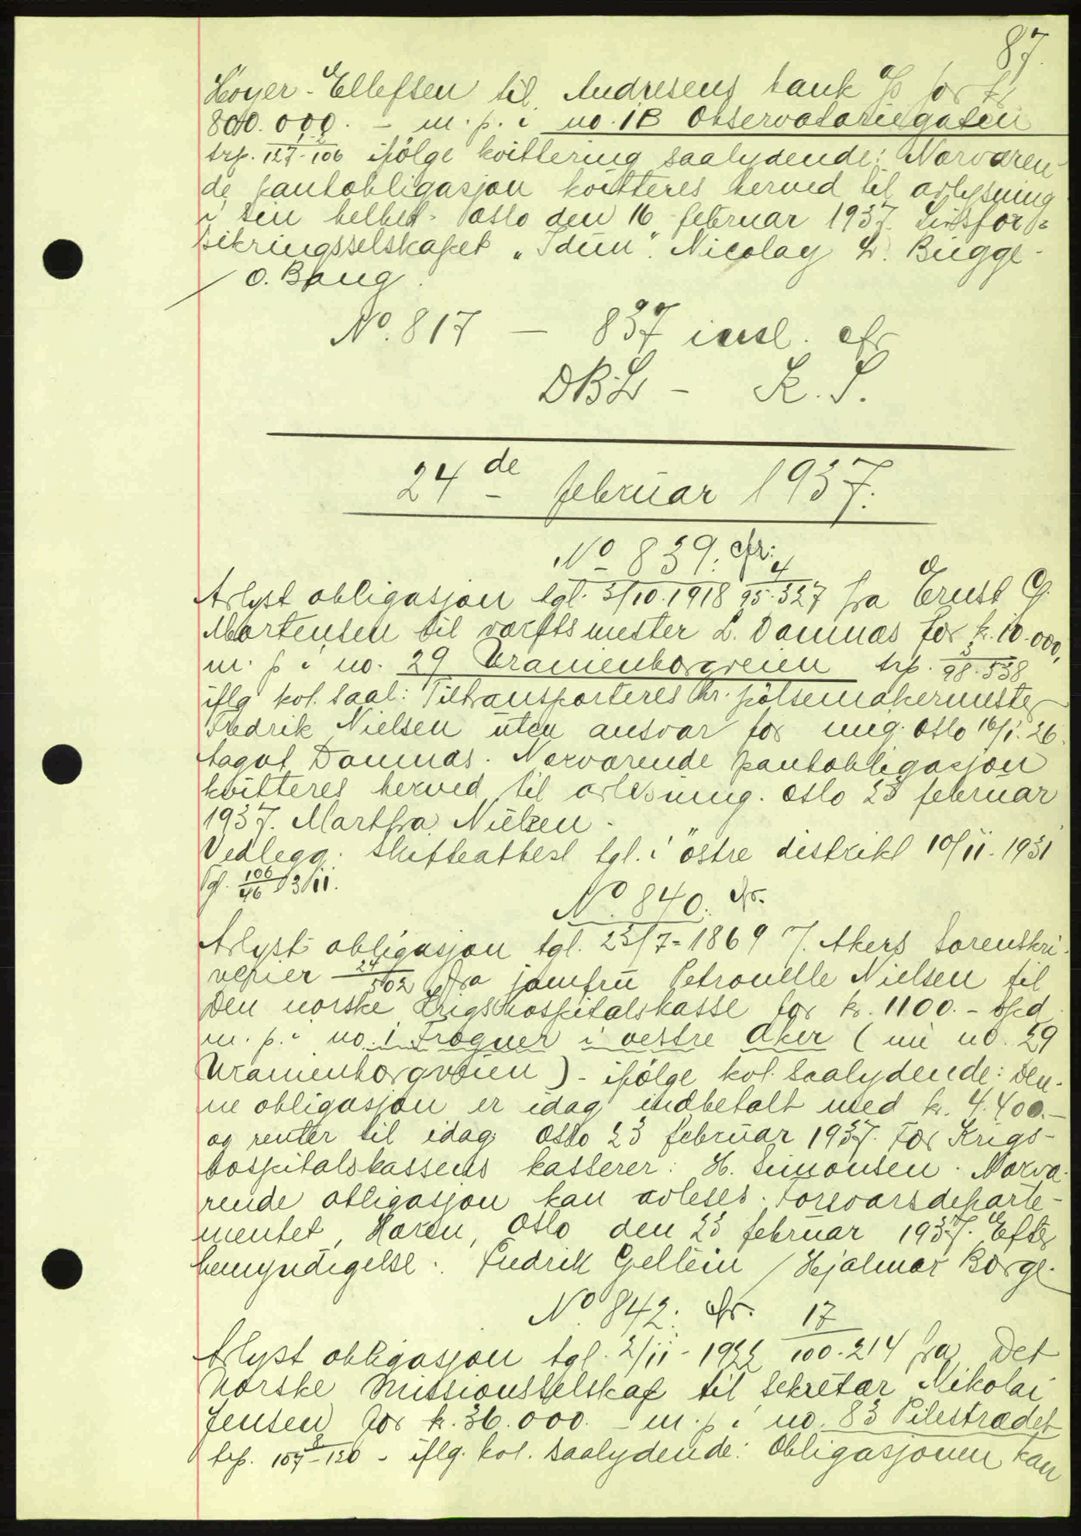 87.
Høyer-Ellefsen til Andresens bank A/S for kr
800.000. - m. p. i no. 1B Observatoriegaten
trp. 127-106 ifölge kvittering saalydende: Nærværen-
de pantobligasjon kvitteres herved til avlysning
i sin helhet. Oslo den 16 februar 1937. Livsfor-
sikringsselskapet "Idun". Nicolay L. Bugge.
/ O. Bang.
No. 817 — 837 insl. cfr
DBL - K. S.
24de februar 1937.
No 839: cfr:
Avlyst obligasjon tgl. 3/10.1918 4/95.327 fra Ernst G.
Mortensen til værftsmester L. Damnæs for kr. 10.000,
m. p i no. 29 Uranienborgveien trp. 3/98-538
iflg kvt. saal: Tiltransporteres hr. pölsemakermester
Fredrik Nielsen uten ansvar for mig. Oslo 16/1.26.
Aagot Damnæs. Nærværende pantobligasjon
kvitteres herved til avlesning. Oslo 23 februar
1937. Martha Nielsen.
Vedlegg: Skifteattest tgl. i östre distrikt 10/11-1931
106/46
No. 840. cfr.
Avlyst obligasjon tgl. 23/7-1869 v. Akers Sorenskri-
verier 24/502 fra jomfru Petronelle Nielsen til
Den norske Krigshospitalskasse for kr. 1100. - opd
m. p. i no. 1 Frogner i vestre Aker (nu no. 29
Uranienborgveien) - ifölge kvt. saalydende: Den-
ne obligasjon er idag indbetalt med kr. 4.400.-
og renter til idag Oslo 23 februar 1937. For Krigs-
hospitalskassens kasserer: H. Simonsen. Nærvæ-
rende obligasjon kan avleses. Forsvarsdeparte-
mentet, Hæren, Oslo den 23 februar 1937. Efter
bemyndigelse. Fredrik Gellein / Hjalmar Borge.
No. 842: cfr.
Avlyst obligasjon tgl. 2/11-1922 17/100-214 fra Det
Norske Missionsselskap til sekretær Nikolai
Jensen for kr. 36.000. - m. p i no. 83 Pilestrædet
trp. 8/107-120 - iflg. kvt. saalydende: Obligasjonen kan